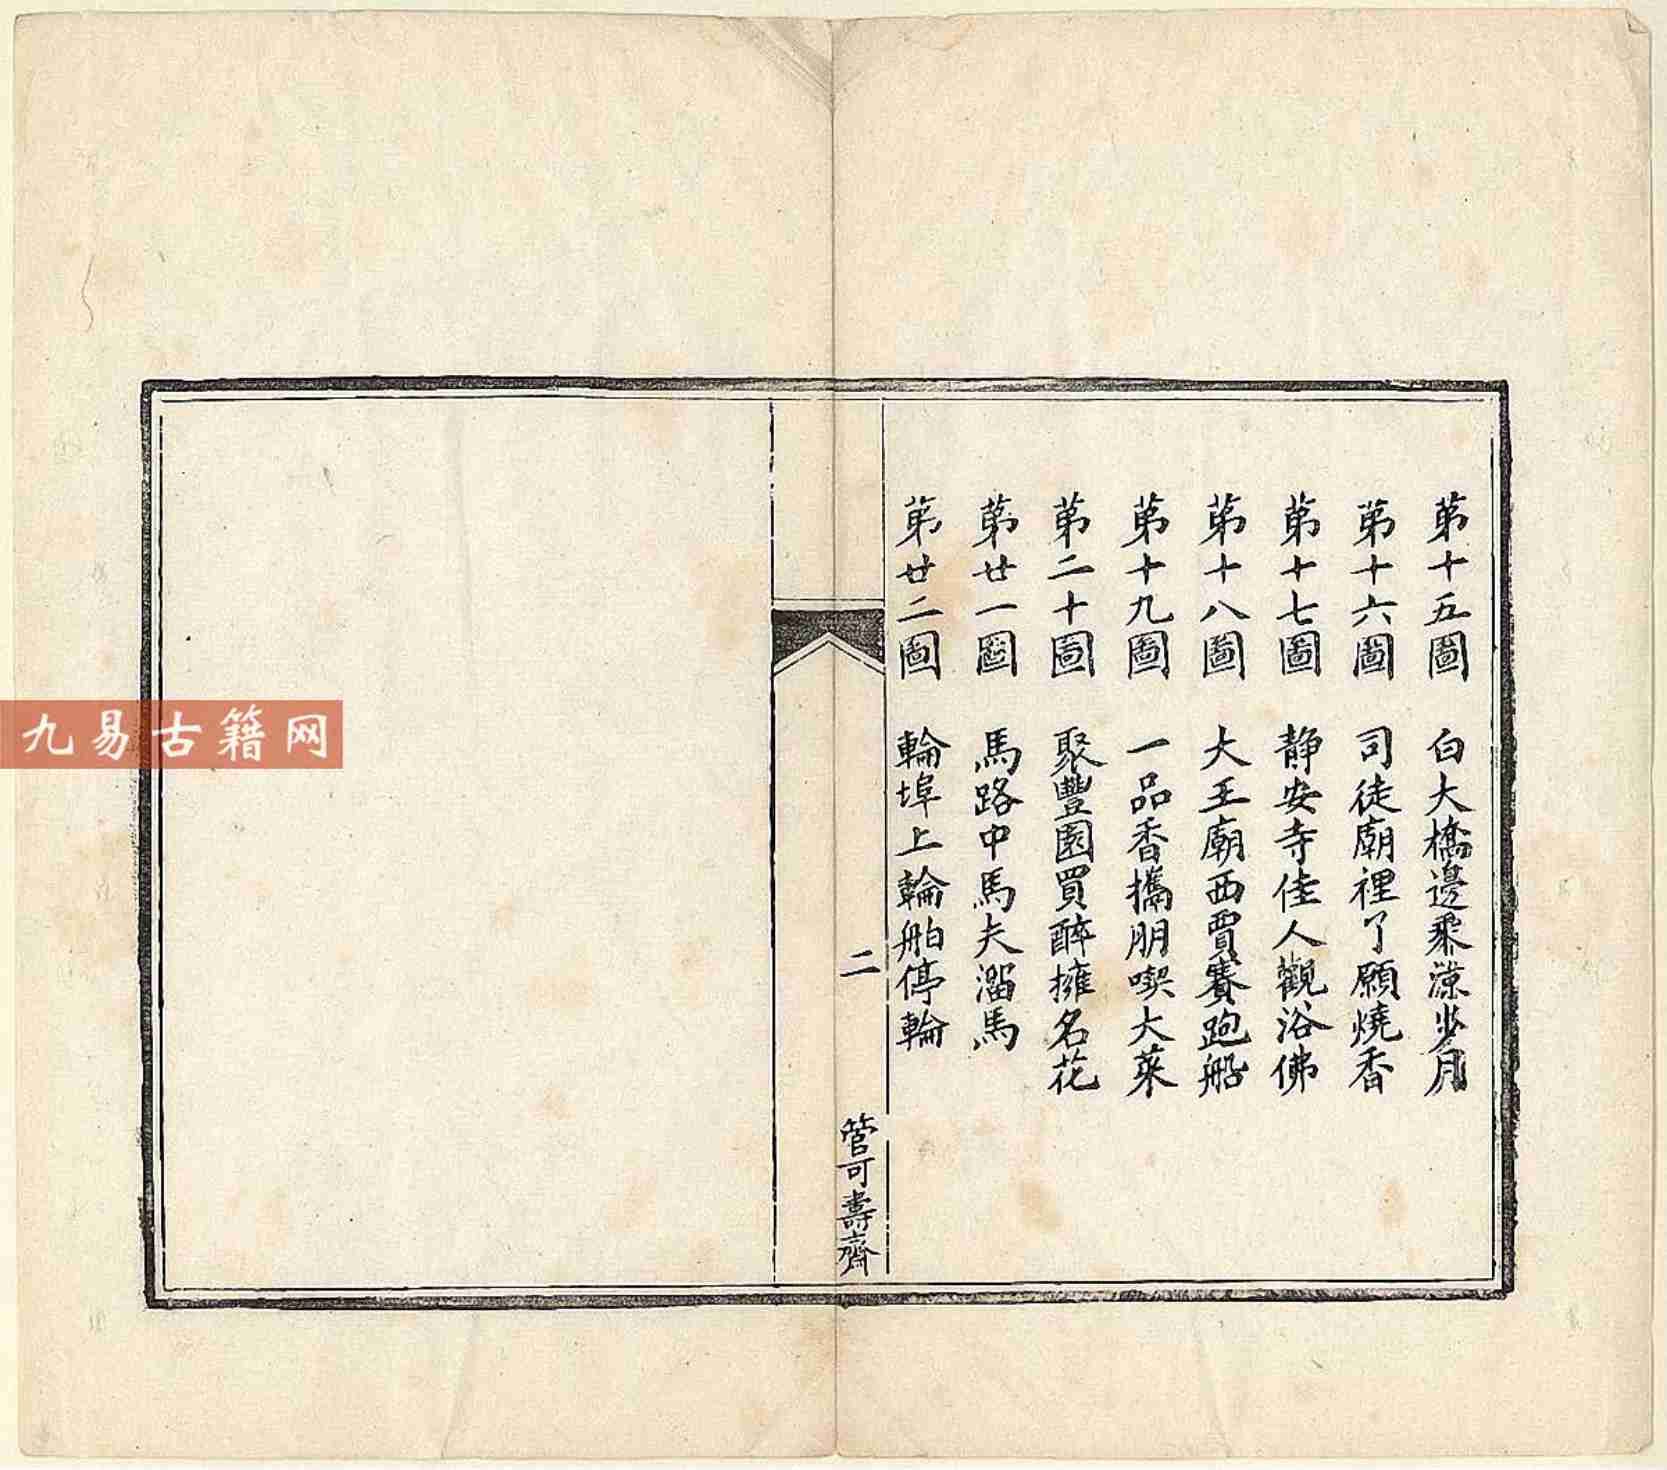 第十五圖　白大橋邊乘涼步月
第十六圖　司徒廟裡了願燒香
第十七圖　静安寺佳人觀浴佛
第十八圖　大王廟西賈賽跑船
第十九圖　一品香攜朋喫大菜
第二十圖　聚豐園買醉擁名花
第廿一圖　馬路中馬夫溜馬
第廿二圖　輪埠上輪船停輪
二
管可壽齋
九易古籍网